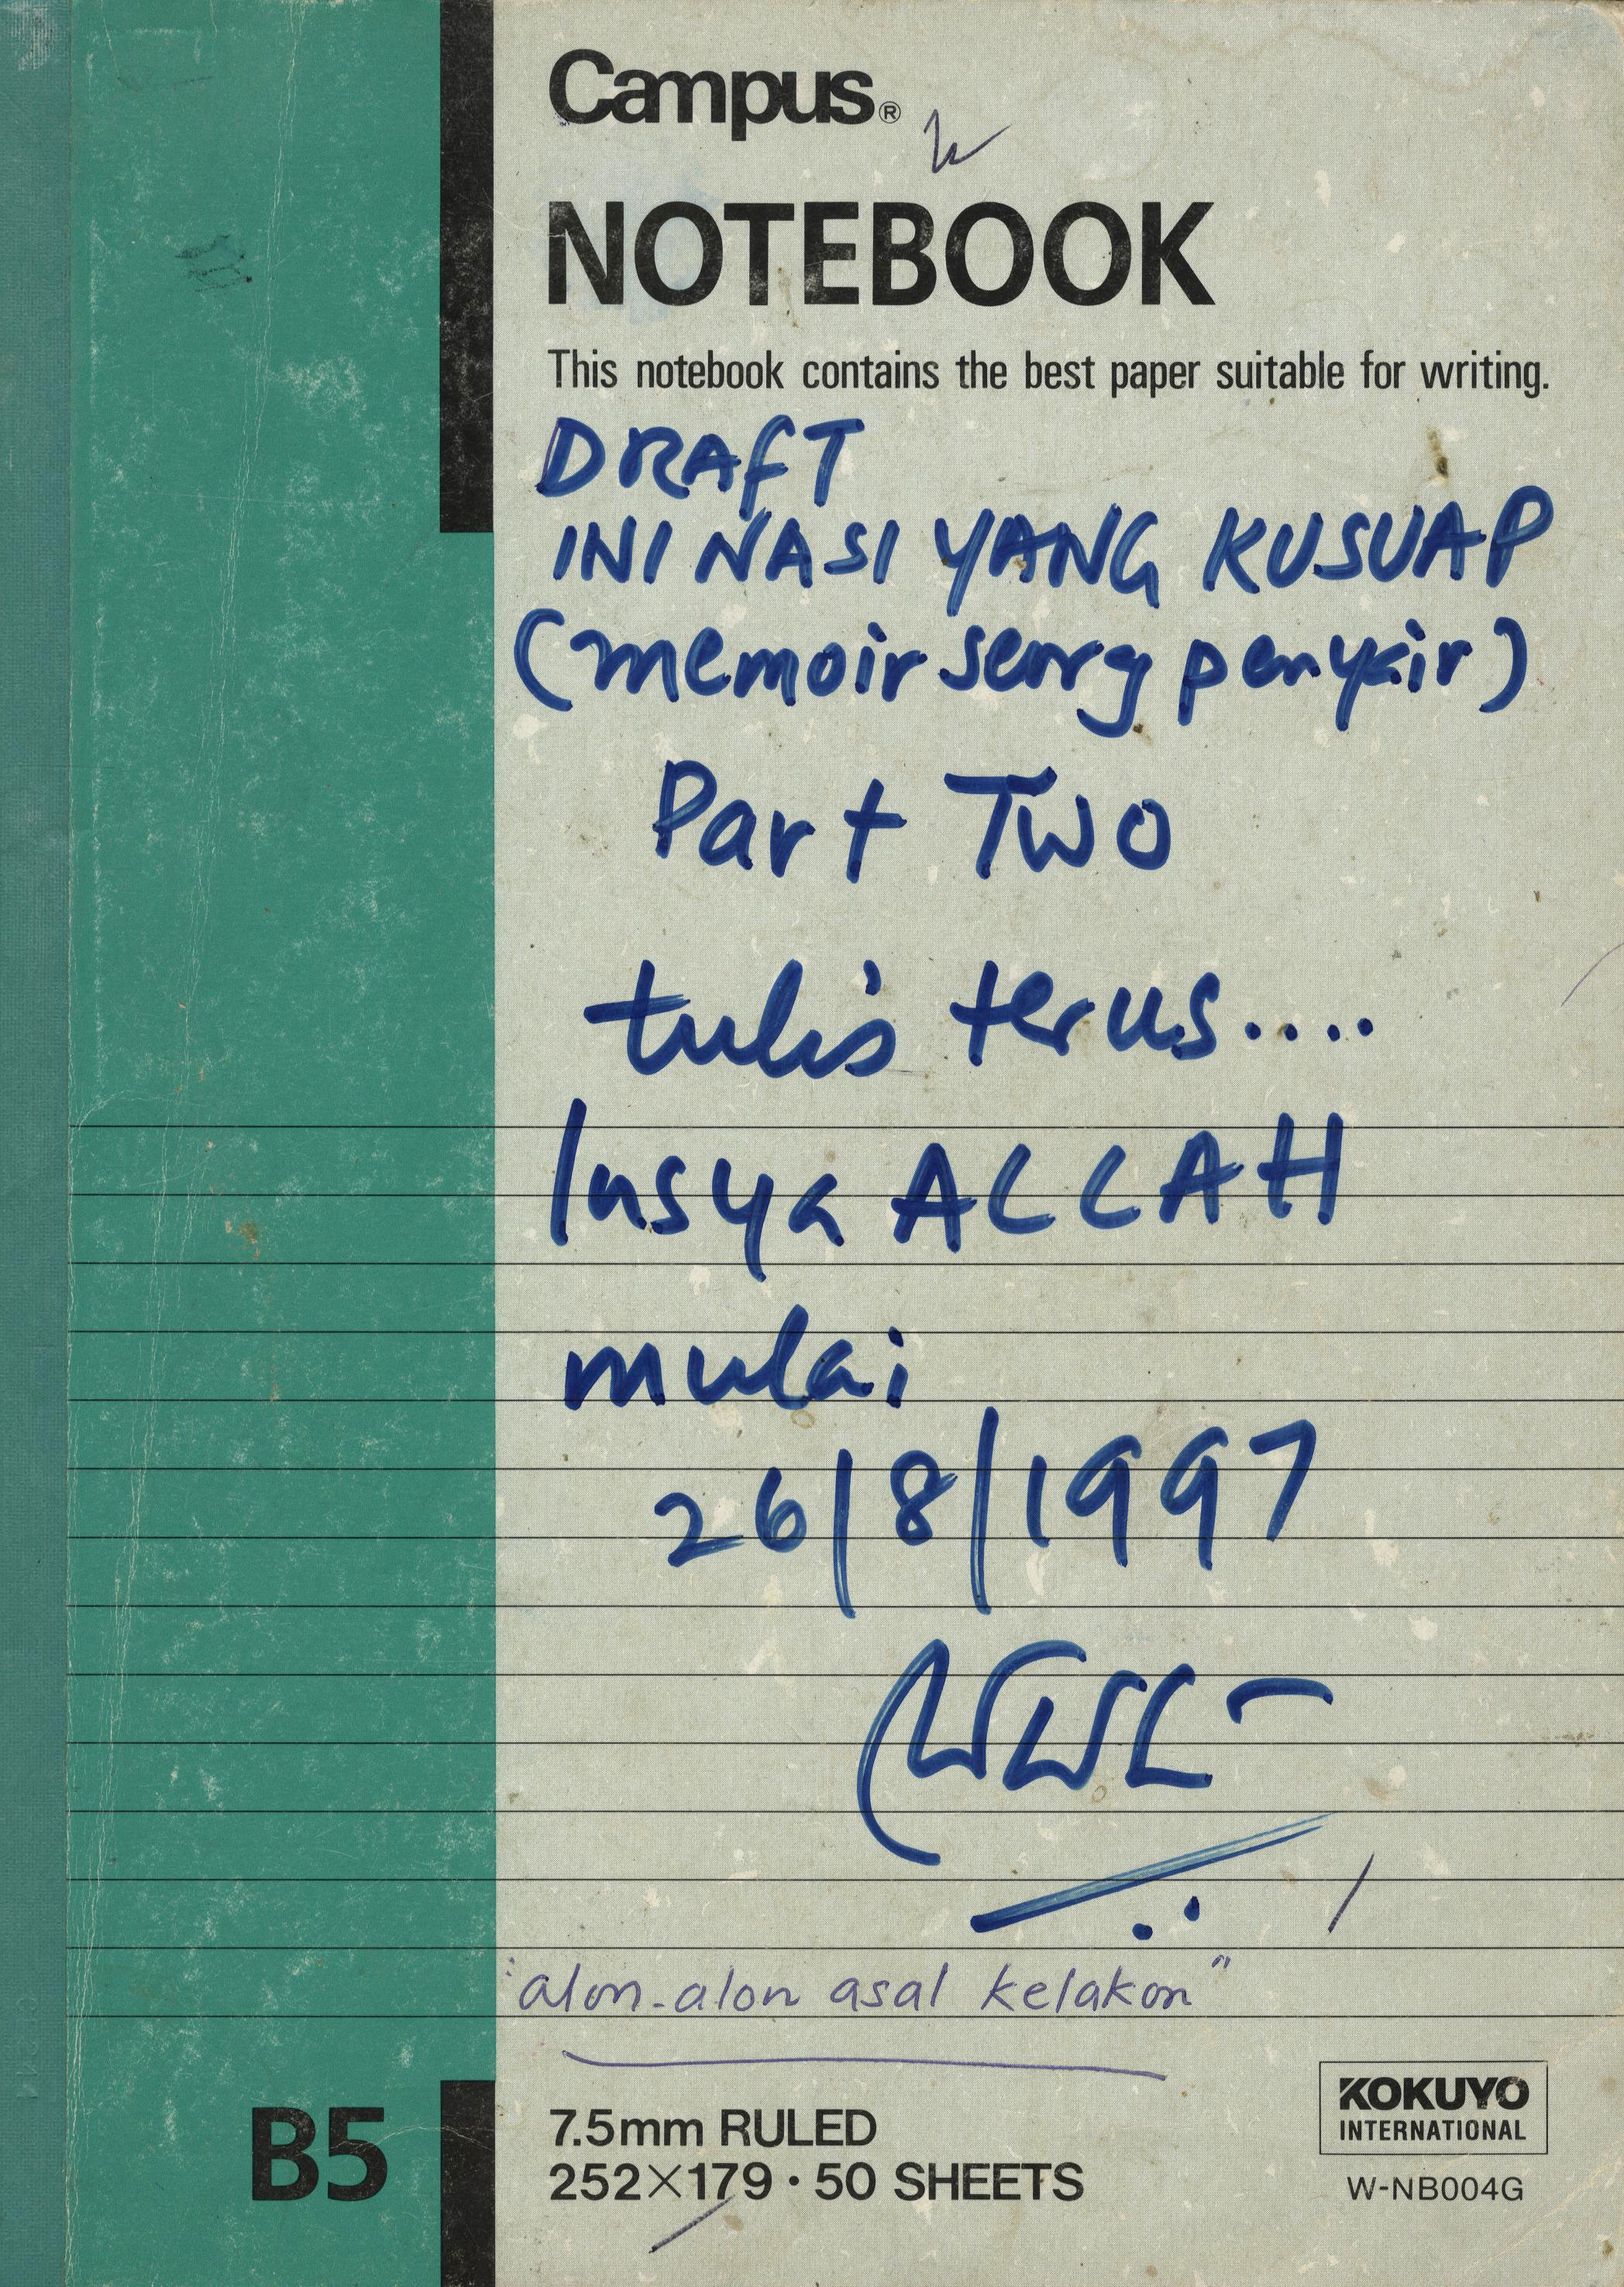 Campus®
NOTEBOOK
This notebook contains the best paper suitable for writing.
DRAFT
INI NASI YANG KUSUAP
(memoir seorg penyair)
Part Two
tulis terus....
Insya ALLAH
mulai
26/8/1997
"alon-alon asal kelakon"
B5
7.5mm RULED
252×179・50 SHEETS
KOKUYO
INTERNATIONAL
W-NB004G